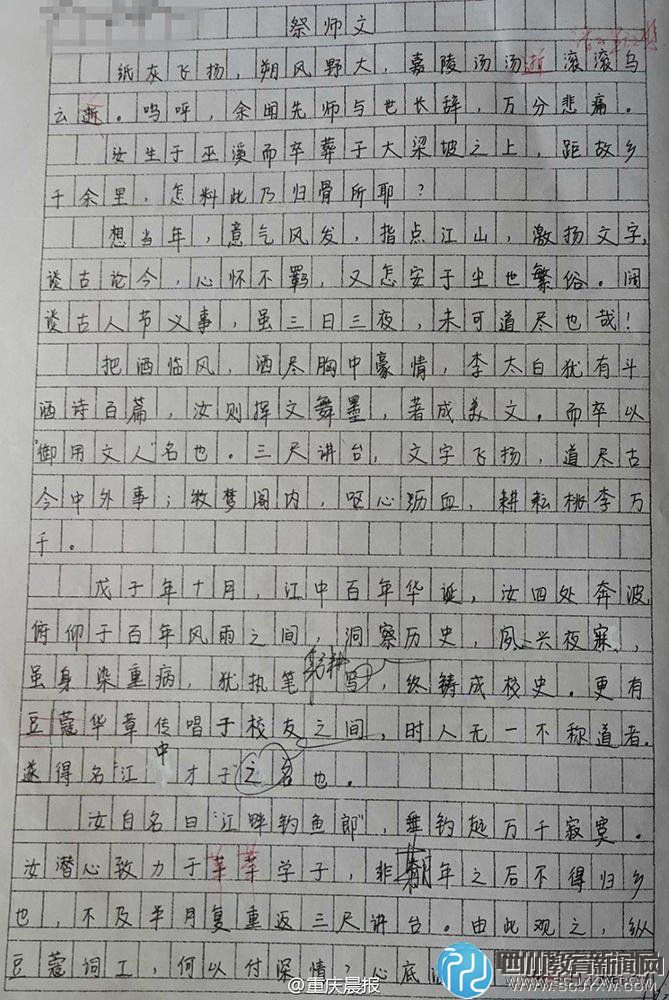 祭师文
纸灰飞扬，朔风野大，嘉陵汤汤逝滚滚乌
云逝。呜呼，余闻先师与世长辞，万分悲痛。
汝生于巫溪而卒葬于大梁坡之上，距故乡
千余里，怎料此乃归骨所耶？
想当年，意气风发，指点江山，激扬文字，
谈古论今，心怀不羁，又怎安于尘世繁俗。闲
谈古人节义事，虽三日三夜，未可道尽也哉！
把酒临风，洒尽胸中豪情，李太白犹有斗
酒诗百篇，汝则挥文舞墨，著成美文。而卒以
"御用文人"名也。三尺讲台，文字飞扬，道尽古
今中外事；牧梦阁内，呕心沥血，耕耘桃李万
千。
戊子年十月，江中百年华诞，汝四处奔波，
俯仰于百年风雨之间，洞察历史，夙兴夜寐，
虽身染重病，犹执笔写，终铸成校史。更有
豆蔻华章传唱于校友之间，时人无一不称道者。
遂得名"江中才子"之名也。
汝自名曰"江畔钓鱼郎"，垂钓起万千寂寞。
汝潜心致力于莘莘学子，非期年之后不得归乡
也，不及半月复重返三尺讲台。由此观之，纵
豆蔻词工，何以付深情？心底
@重庆晨报
四川教育新闻网
WWW.SCJYXW.COM